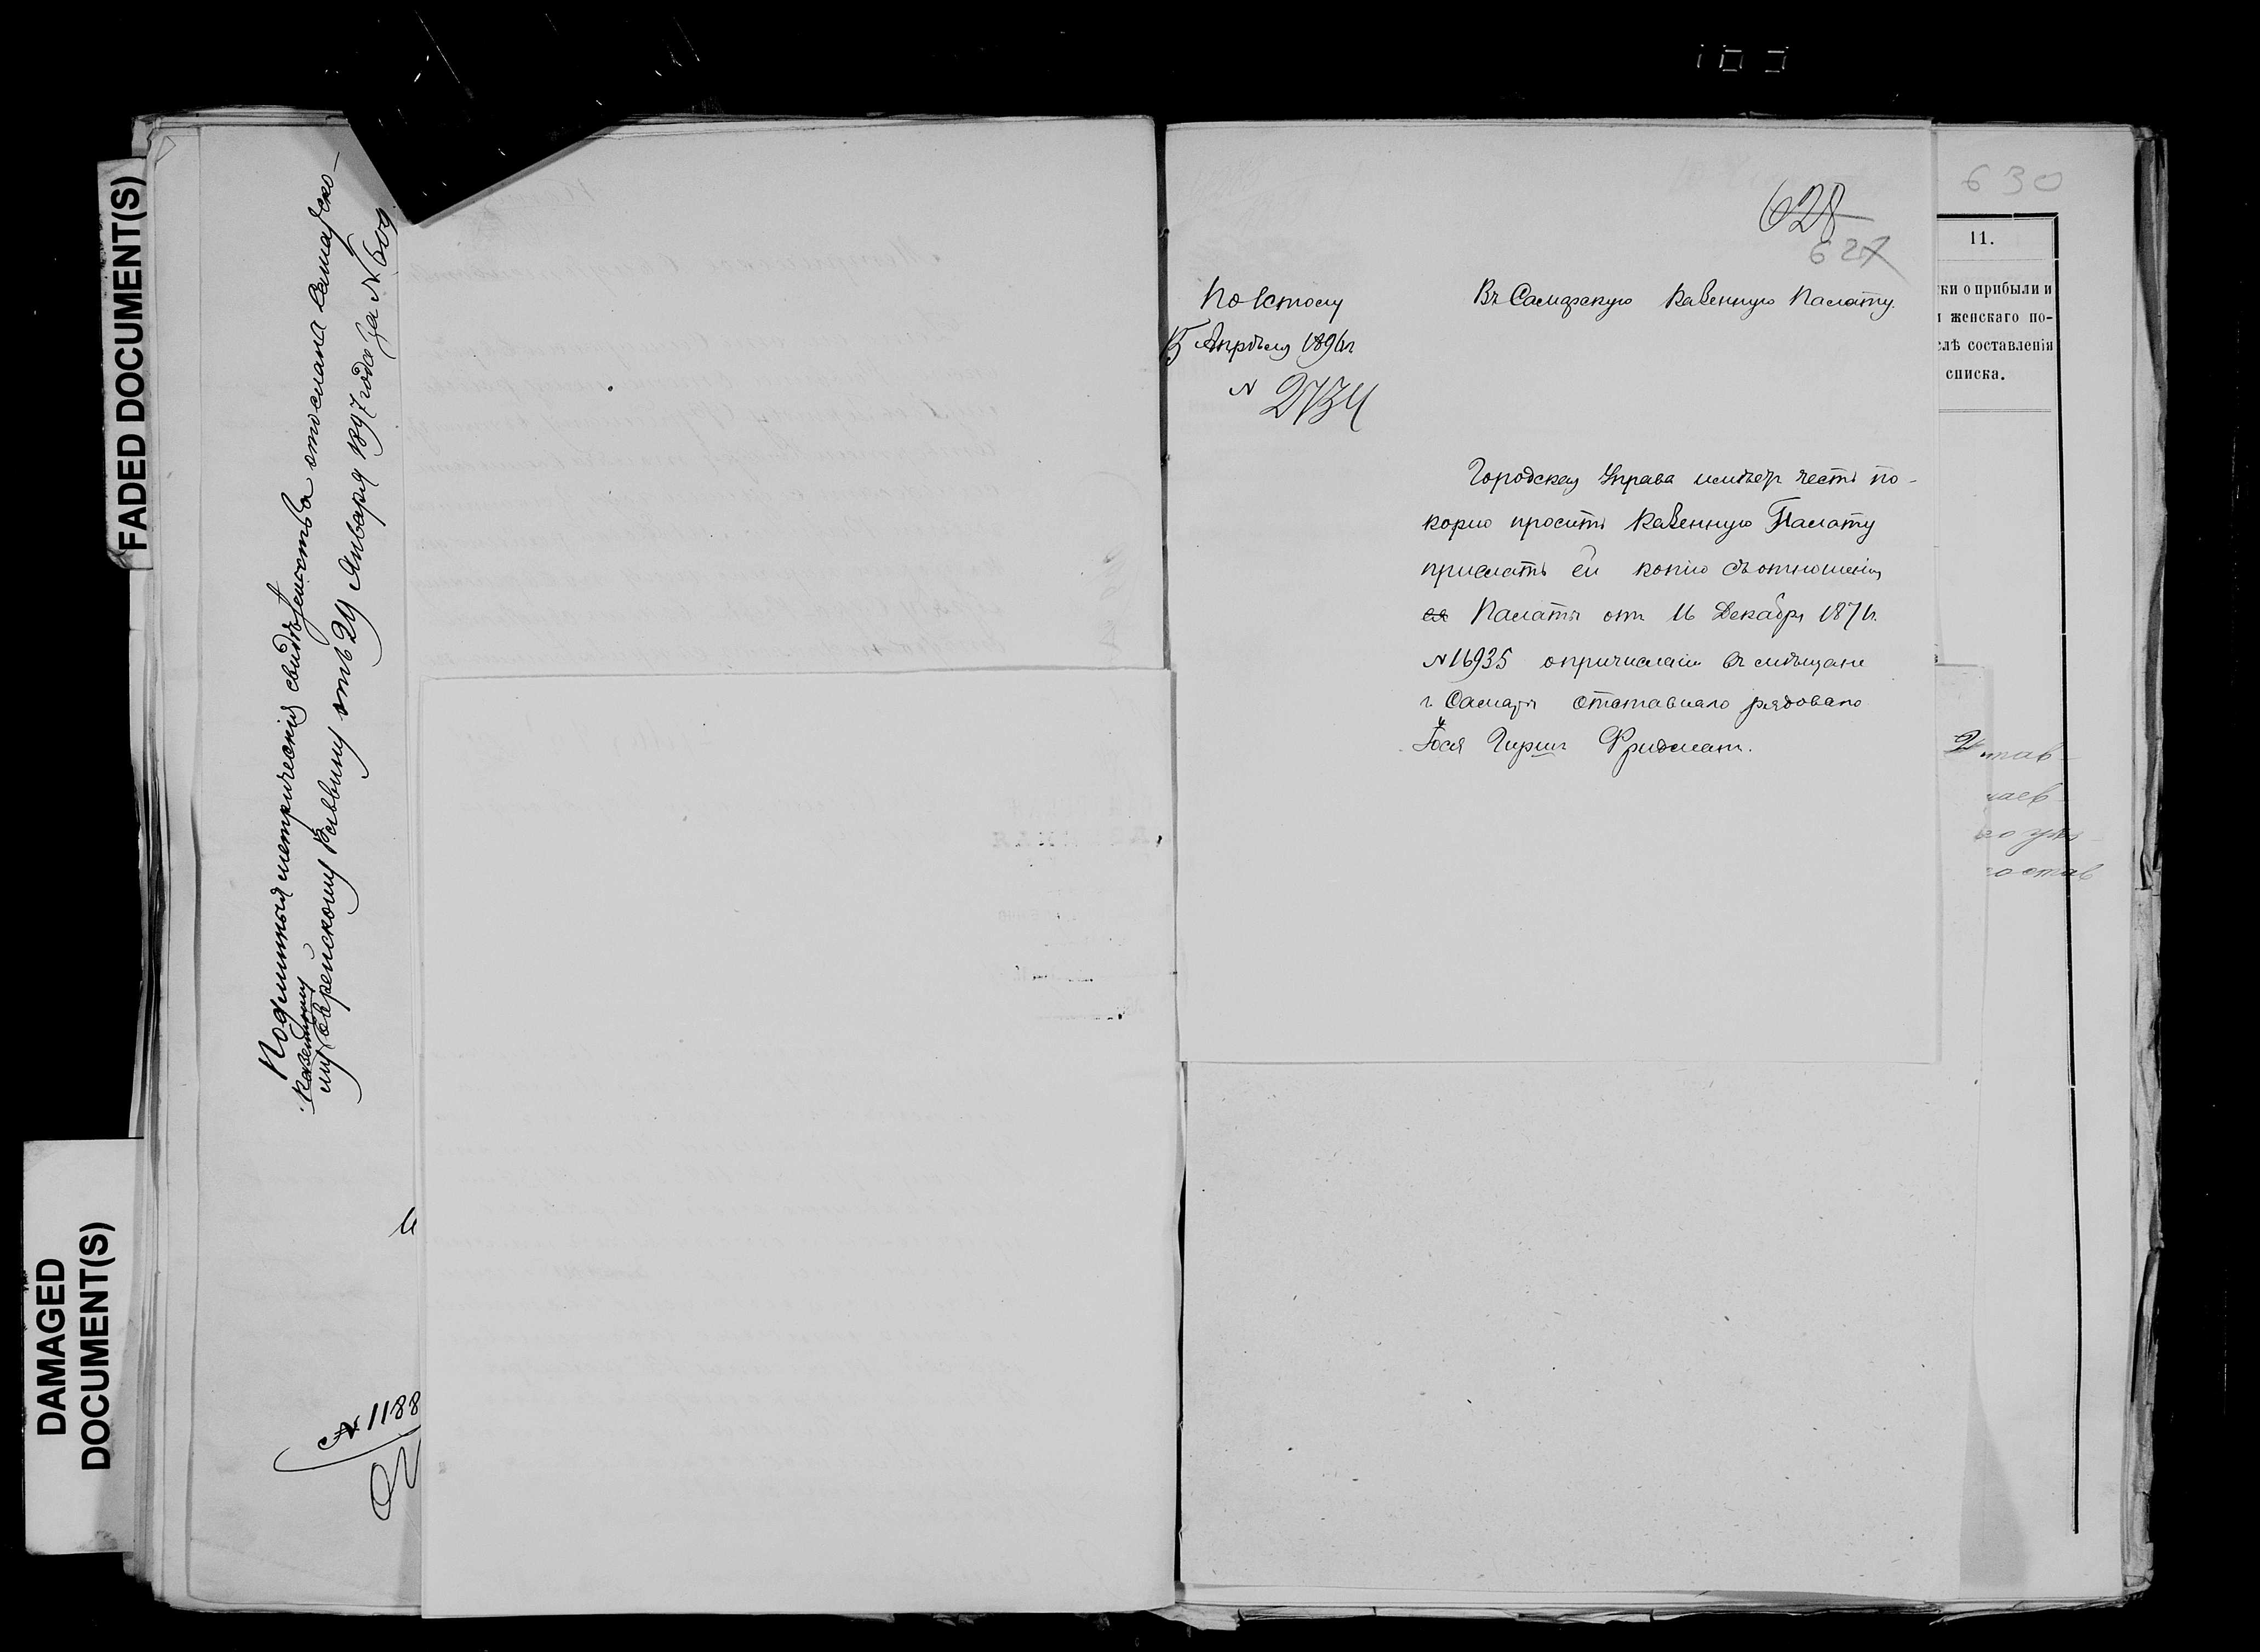 FADED DOCUMENT(S)
DAMAGED
DOCUMENT(S)
Подлинныя метрическія свидѣтельства отосланы Самарско-
казенному
му Еврейскому Раввину отъ 29 Января 1897 года за № 609
№ 1188
628
627
630
По 1 столу
15 Апрѣля 1896 г
№ 2734
Въ Самарскую Казенную Палату.
Городская Управа имѣетъ честь по-
корно просить Казенную Палату
прислать ей копію съ отношенія
ея Палаты отъ 16 Декабря 1876 г.
№ 16935 о причисленіи въ мѣщане
г. Самары отставнаго рядоваго
Гирша Фридмана.
11.
ки о прибыли и
и женскаго по-
слѣ составленія
списка.
тав-
чаев-
го уѣз-
состав